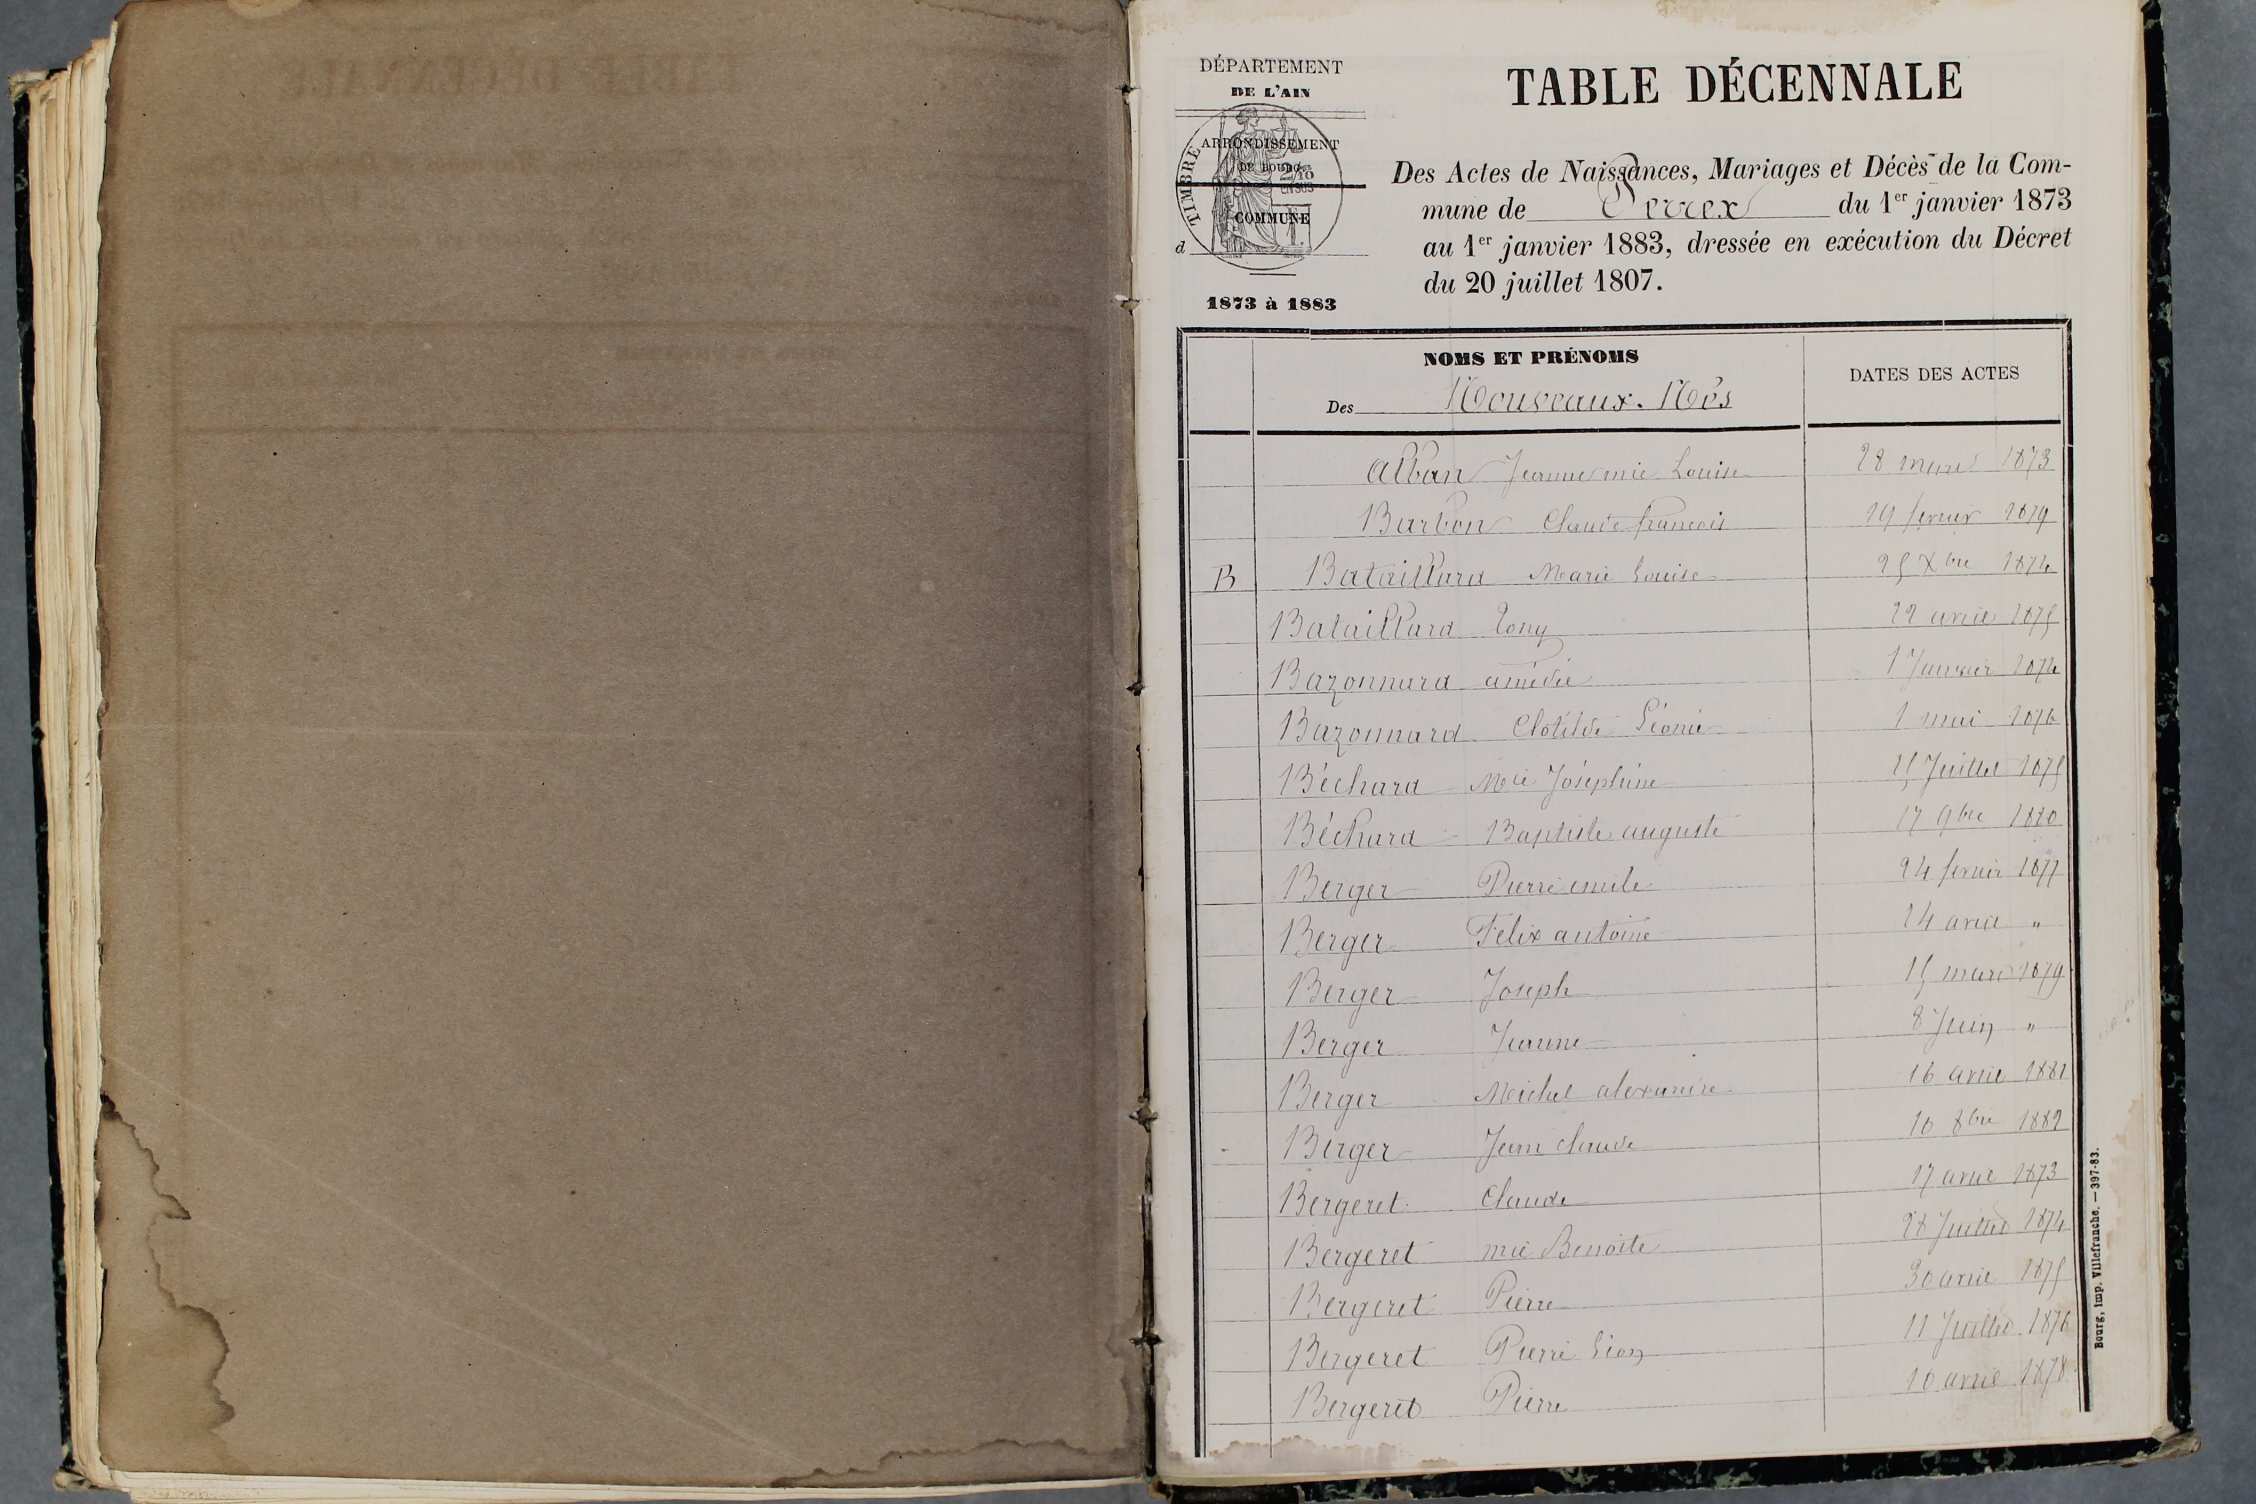 DÉPARTEMENT
DE L'AIN
TIMBRE
ARRONDISSEMENT
DE BOURG
2/10
EN SUS
COMMUNE
1F
d
1873 à 1883
TABLE DÉCENNALE
Des Actes de Naissances, Mariages et Décès de la Com-
mune de Perrex du 1er janvier 1873
au 1er janvier 1883, dressée en exécution du Décret
du 20 juillet 1807.
NOMS ET PRÉNOMS
Des Nouveaux-Nés
DATES DES ACTES
Alban Jeanne mie Louise 28 mars 1873
Barbon Claude françois 19 fevrier 1879
B Bataillard Marie Louise 25 Xbre 1874
Bataillard Tony 22 avril 1875
Bazonnard amédée 1 Janvier 1874
Bazonnard Clotilde Léonie 1 mai 1876
Béchard Mie Joséphine 15 Juillet 1875
Béchard Baptiste auguste 17 9bre 1880
Berger Pierre emile 24 fevrier 1877
Berger Felix antoine 24 avril "
Berger Joseph 15 mars 1879
Berger Jeanne 8 Juin "
Berger Michel alexandre 16 avril 1881
Berger Jean claude 10 8bre 1882
Bergeret Claude 17 avril 1873
Bergeret mie Benoite 28 Juillet 1874
Bergeret Pierre 30 avril 1875
Bergeret Pierre Léon 11 Juillet 1876
Bergeret Pierre 10 avril 1878
Bourg, imp. Villefranche. — 397-83.